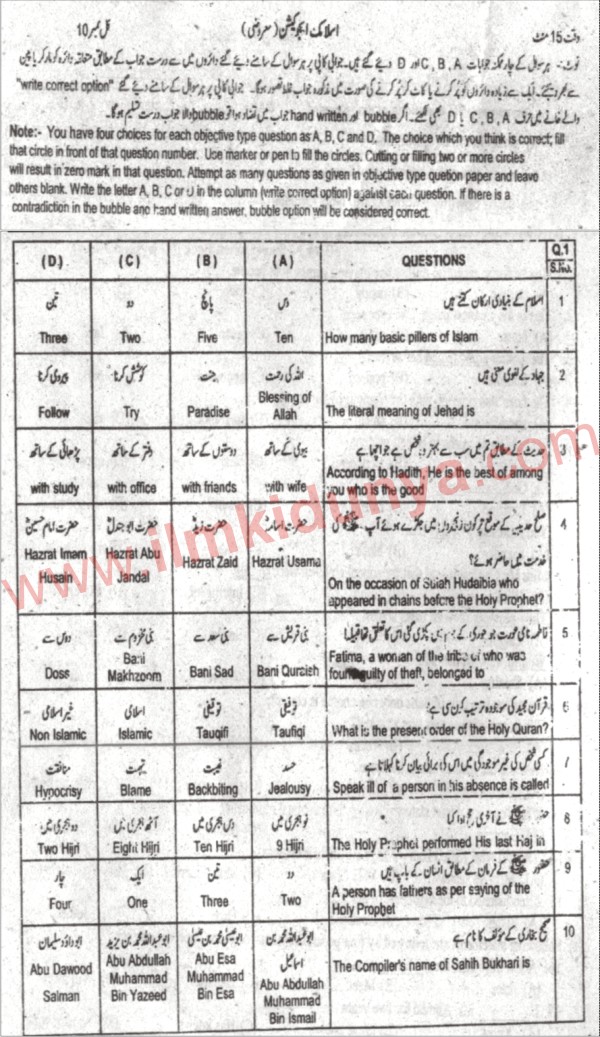 وقت 15 منٹ
اسلامک ایجوکیشن (معروضی)
کل نمبر 10
نوٹ:- ہر سوال کے چار ممکنہ جوابات C, B, A اور D دیئے گئے ہیں۔ جوابی کاپی پر ہر سوال کے سامنے دیئے گئے دائروں میں سے درست جواب کے مطابق متعلقہ دائرہ کو مارکر یا پین
سے بھر دیجئے۔ ایک سے زیادہ دائروں کو پُر کرنے یا کاٹ کر پُر کرنے کی صورت میں مذکورہ جواب غلط تصور ہوگا۔ جوابی کاپی پر ہر سوال کے سامنے دیئے گئے "write correct option"
والے خانے میں حرف C, B, A یا D بھی لکھئے۔ اگر bubble اور hand written جواب میں تضاد ہوا تو bubble والا جواب درست تسلیم ہوگا۔
Note:- You have four choices for each objective type question as A, B, C and D. The choice which you think is correct; fill
that circle in front of that question number. Use marker or pen to fill the circles. Cutting or filling two or more circles
will result in zero mark in that question. Attempt as many questions as given in objective type quetion paper and leave
others blank. Write the letter A, B, C or D in the column (write correct option) against each question. If there is a
contradiction in the bubble and hand written answer, bubble option will be considered correct.
(D) (C) (B) (A) QUESTIONS Q.1 S.No.
تین دو پانچ دس اسلام کے بنیادی ارکان کتنے ہیں 1
Three Two Five Ten How many basic pillers of Islam
پیروی کرنا کوشش کرنا جنت اللہ کی رحمت جہاد کے لغوی معنی ہیں 2
Follow Try Paradise Blessing of Allah The literal meaning of Jehad is
پڑھائی کے ساتھ دفتر کے ساتھ دوستوں کے ساتھ بیوی کے ساتھ حدیث کے مطابق تم میں سب سے بہتر وہ شخص ہے جو اچھا ہے 3
with study with office with friands with wife According to Hadith, He is the best of among
you who is the good
حضرت امام حسینؓ حضرت ابو جندلؓ حضرت زیدؓ حضرت اسامہؓ صلح حدیبیہ کے موقع پر کون زنجیروں میں جکڑے ہوئے آپ ﷺ کی 4
خدمت میں حاضر ہوئے؟
Hazrat Imam Husain Hazrat Abu Jandal Hazrat Zaid Hazrat Usama On the occasion of Sulah Hudaibia who
appeared in chains before the Holy Prophet?
دوس سے بنی مخزوم سے بنی سعد سے بنی قریش سے فاطمہ نامی عورت جو چوری کے جرم میں پکڑی گئی اس کا تعلق تھا قبیلہ 5
Doss Bani Makhzoom Bani Sad Bani Quraish Fatima, a woman of the tribe of who was
found guilty of theft, belonged to
غیر اسلامی اسلامی توقیفی توفیقی قرآن مجید کی موجودہ ترتیب کون سی ہے؟ 6
Non Islamic Islamic Tauqifi Taufiqi What is the present order of the Holy Quran?
منافقت تہمت غیبت حسد کسی شخص کی غیر موجودگی میں اس کی برائی بیان کرنا کہلاتا ہے 7
Hypocrisy Blame Backbiting Jealousy Speak ill of a person in his absence is called
دو ہجری میں آٹھ ہجری میں دس ہجری میں نو ہجری میں حضور ﷺ نے آخری حج ادا کیا 8
Two Hijri Eight Hijri Ten Hijri 9 Hijri The Holy Prophet performed His last Haj in
چار ایک تین دو حضور ﷺ کے فرمان کے مطابق انسان کے باپ ہیں 9
Four One Three Two A person has fathers as per saying of the
Holy Prophet
ابو داؤد سلیمان ابو عبداللہ محمد بن یزید ابو عیسیٰ محمد بن عیسیٰ ابو عبداللہ محمد بن اسماعیل صحیح بخاری کے مؤلف کا نام ہے 10
Abu Dawood Salman Abu Abdullah Muhammad Bin Yazeed Abu Esa Muhammad Bin Esa Abu Abdullah Muhammad Bin Ismail The Compiler's name of Sahih Bukhari is
www.ilmkidunya.com